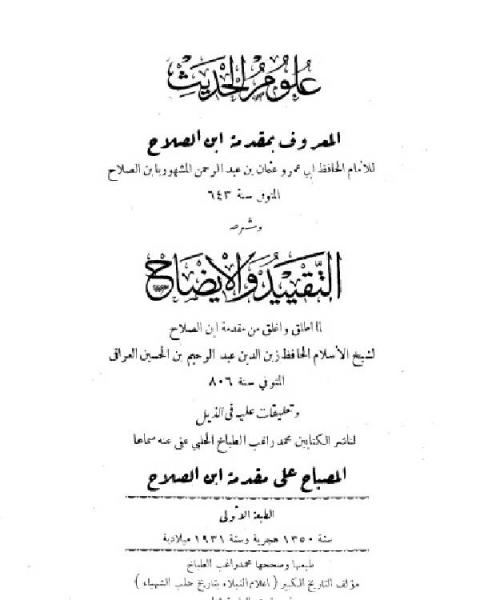 علوم الحديث
المعروف بمقدمة ابن الصلاح
للامام الحافظ ابي عمرو عثمان بن عبد الرحمن المشهور بابن الصلاح
المتوفى سنة ٦٤٣
وشرحه
التقييد والإيضاح
لما اطلق واغلق من مقدمة ابن الصلاح
لشيخ الأسلام الحافظ زين الدين عبد الرحيم بن الحسين العراقي
المتوفي سنة ٨٠٦
وتعليقات عليه في الذيل
لناشر الكتابين محمد راغب الطباخ الحلبي عفي عنه سماها
المصباح على مقدمة ابن الصلاح
الطبعة الأولى
سنة ١٣٥٠ هجرية وسنة ١٩٣١ ميلادية
طبعها وصححها محمد راغب الطباخ
مؤلف التاريخ الكبير ( اعلام النبلاء بتاريخ حلب الشهباء )